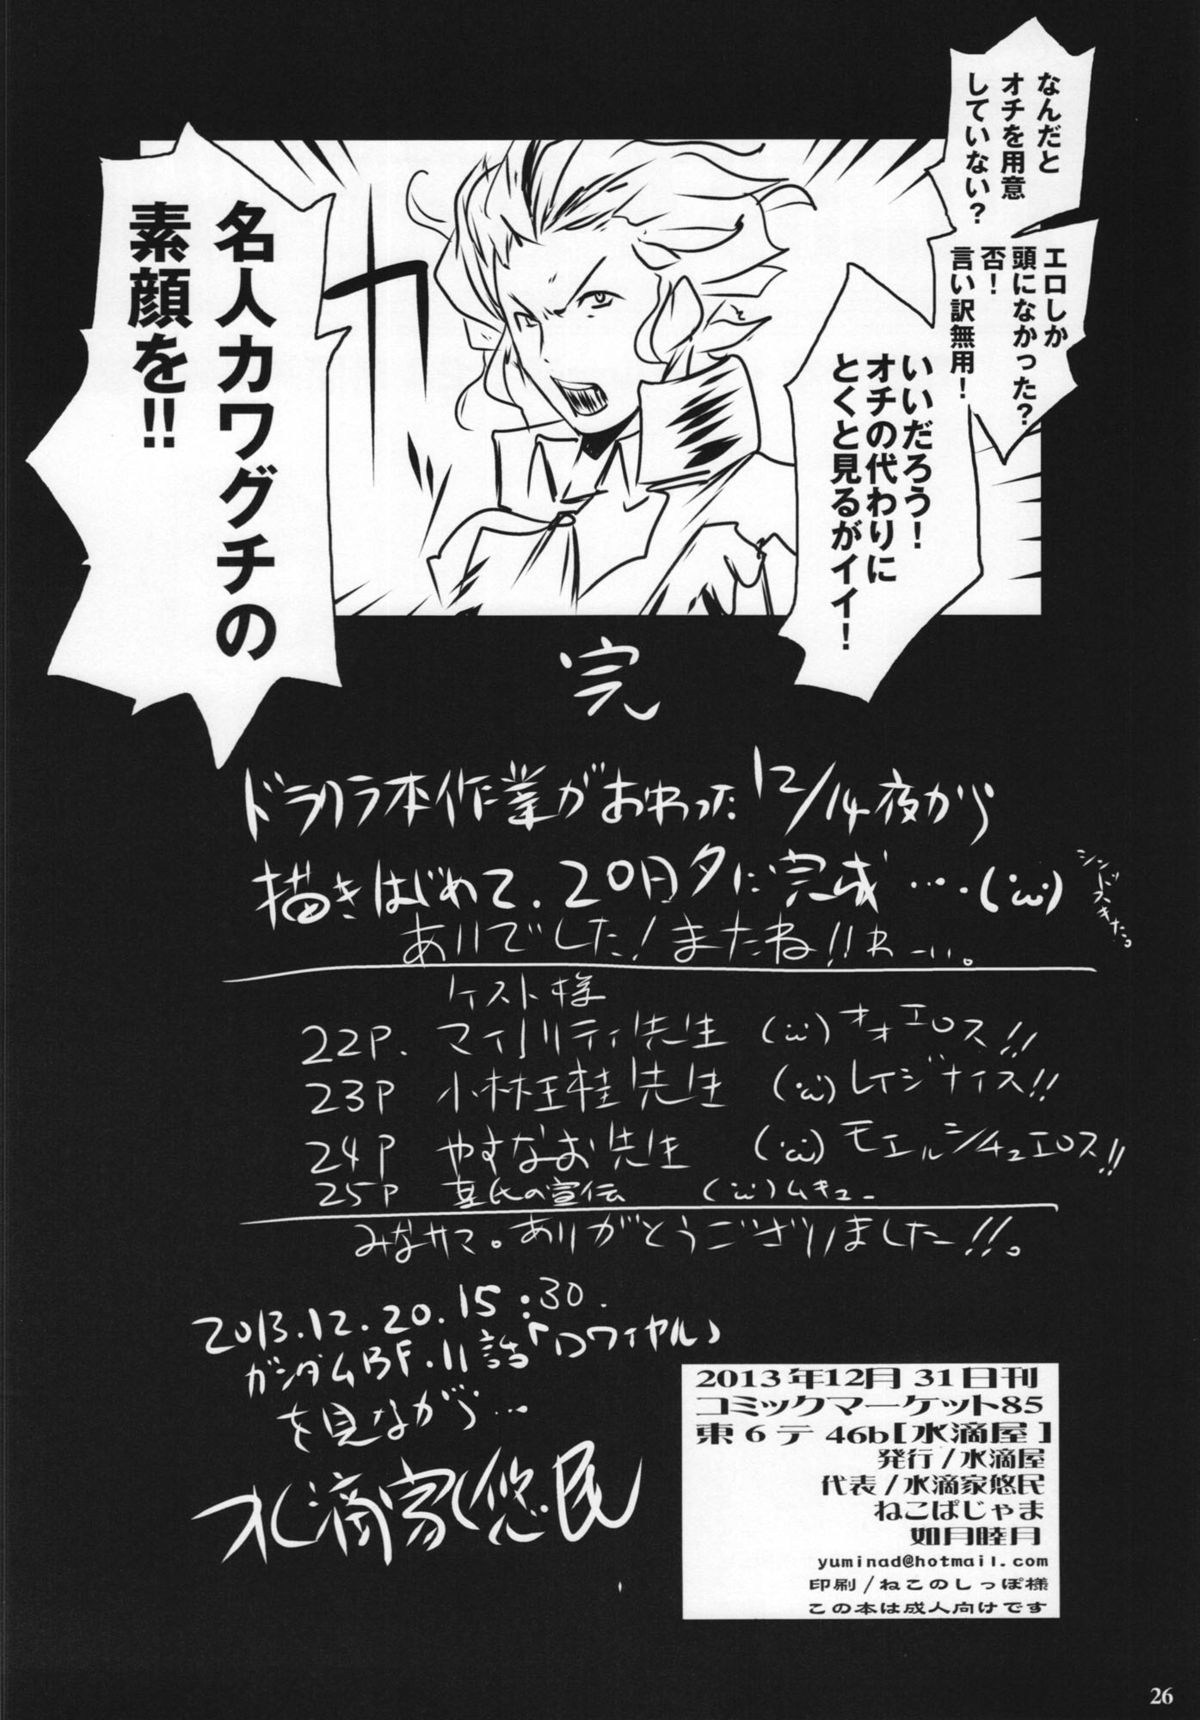 なんだと
オチを用意
していない?
エロしか
頭になかった?
否!
言い訳無用!
いいだろう!
オチの代わりに
とくと見るがイイ!
名人カワグチの
素顔を!!
完
ドラハラ本作業がおわった12/14夜から
描きはじめて、20日夕に完成…‥(´ω`)
ありでした!またね!!わーい。
ゲスト様
22P. マイノリティ先生 (´ω`)オオエロス!!
23P 小林王桂先生 (´ω`)レイジナイス!!
24P やすなお先生 (´ω`)モエルシチュエロス!!
25P 氏の宣伝 (´ω`)ムキュー
みなサマ。ありがとうございました!!。
2013.12.20.15:30.
ガンダムBF.11話「ロワイヤル」
を見ながら…
水滴家悠民
2013年12月31日刊
コミックマーケット85
東6テ 46b[水滴屋]
発行/水滴屋
代表/水滴家悠民
ねこぱじゃま
如月睦月
yuminad@hotmail.com
印刷/ねこのしっぽ様
この本は成人向けです
26